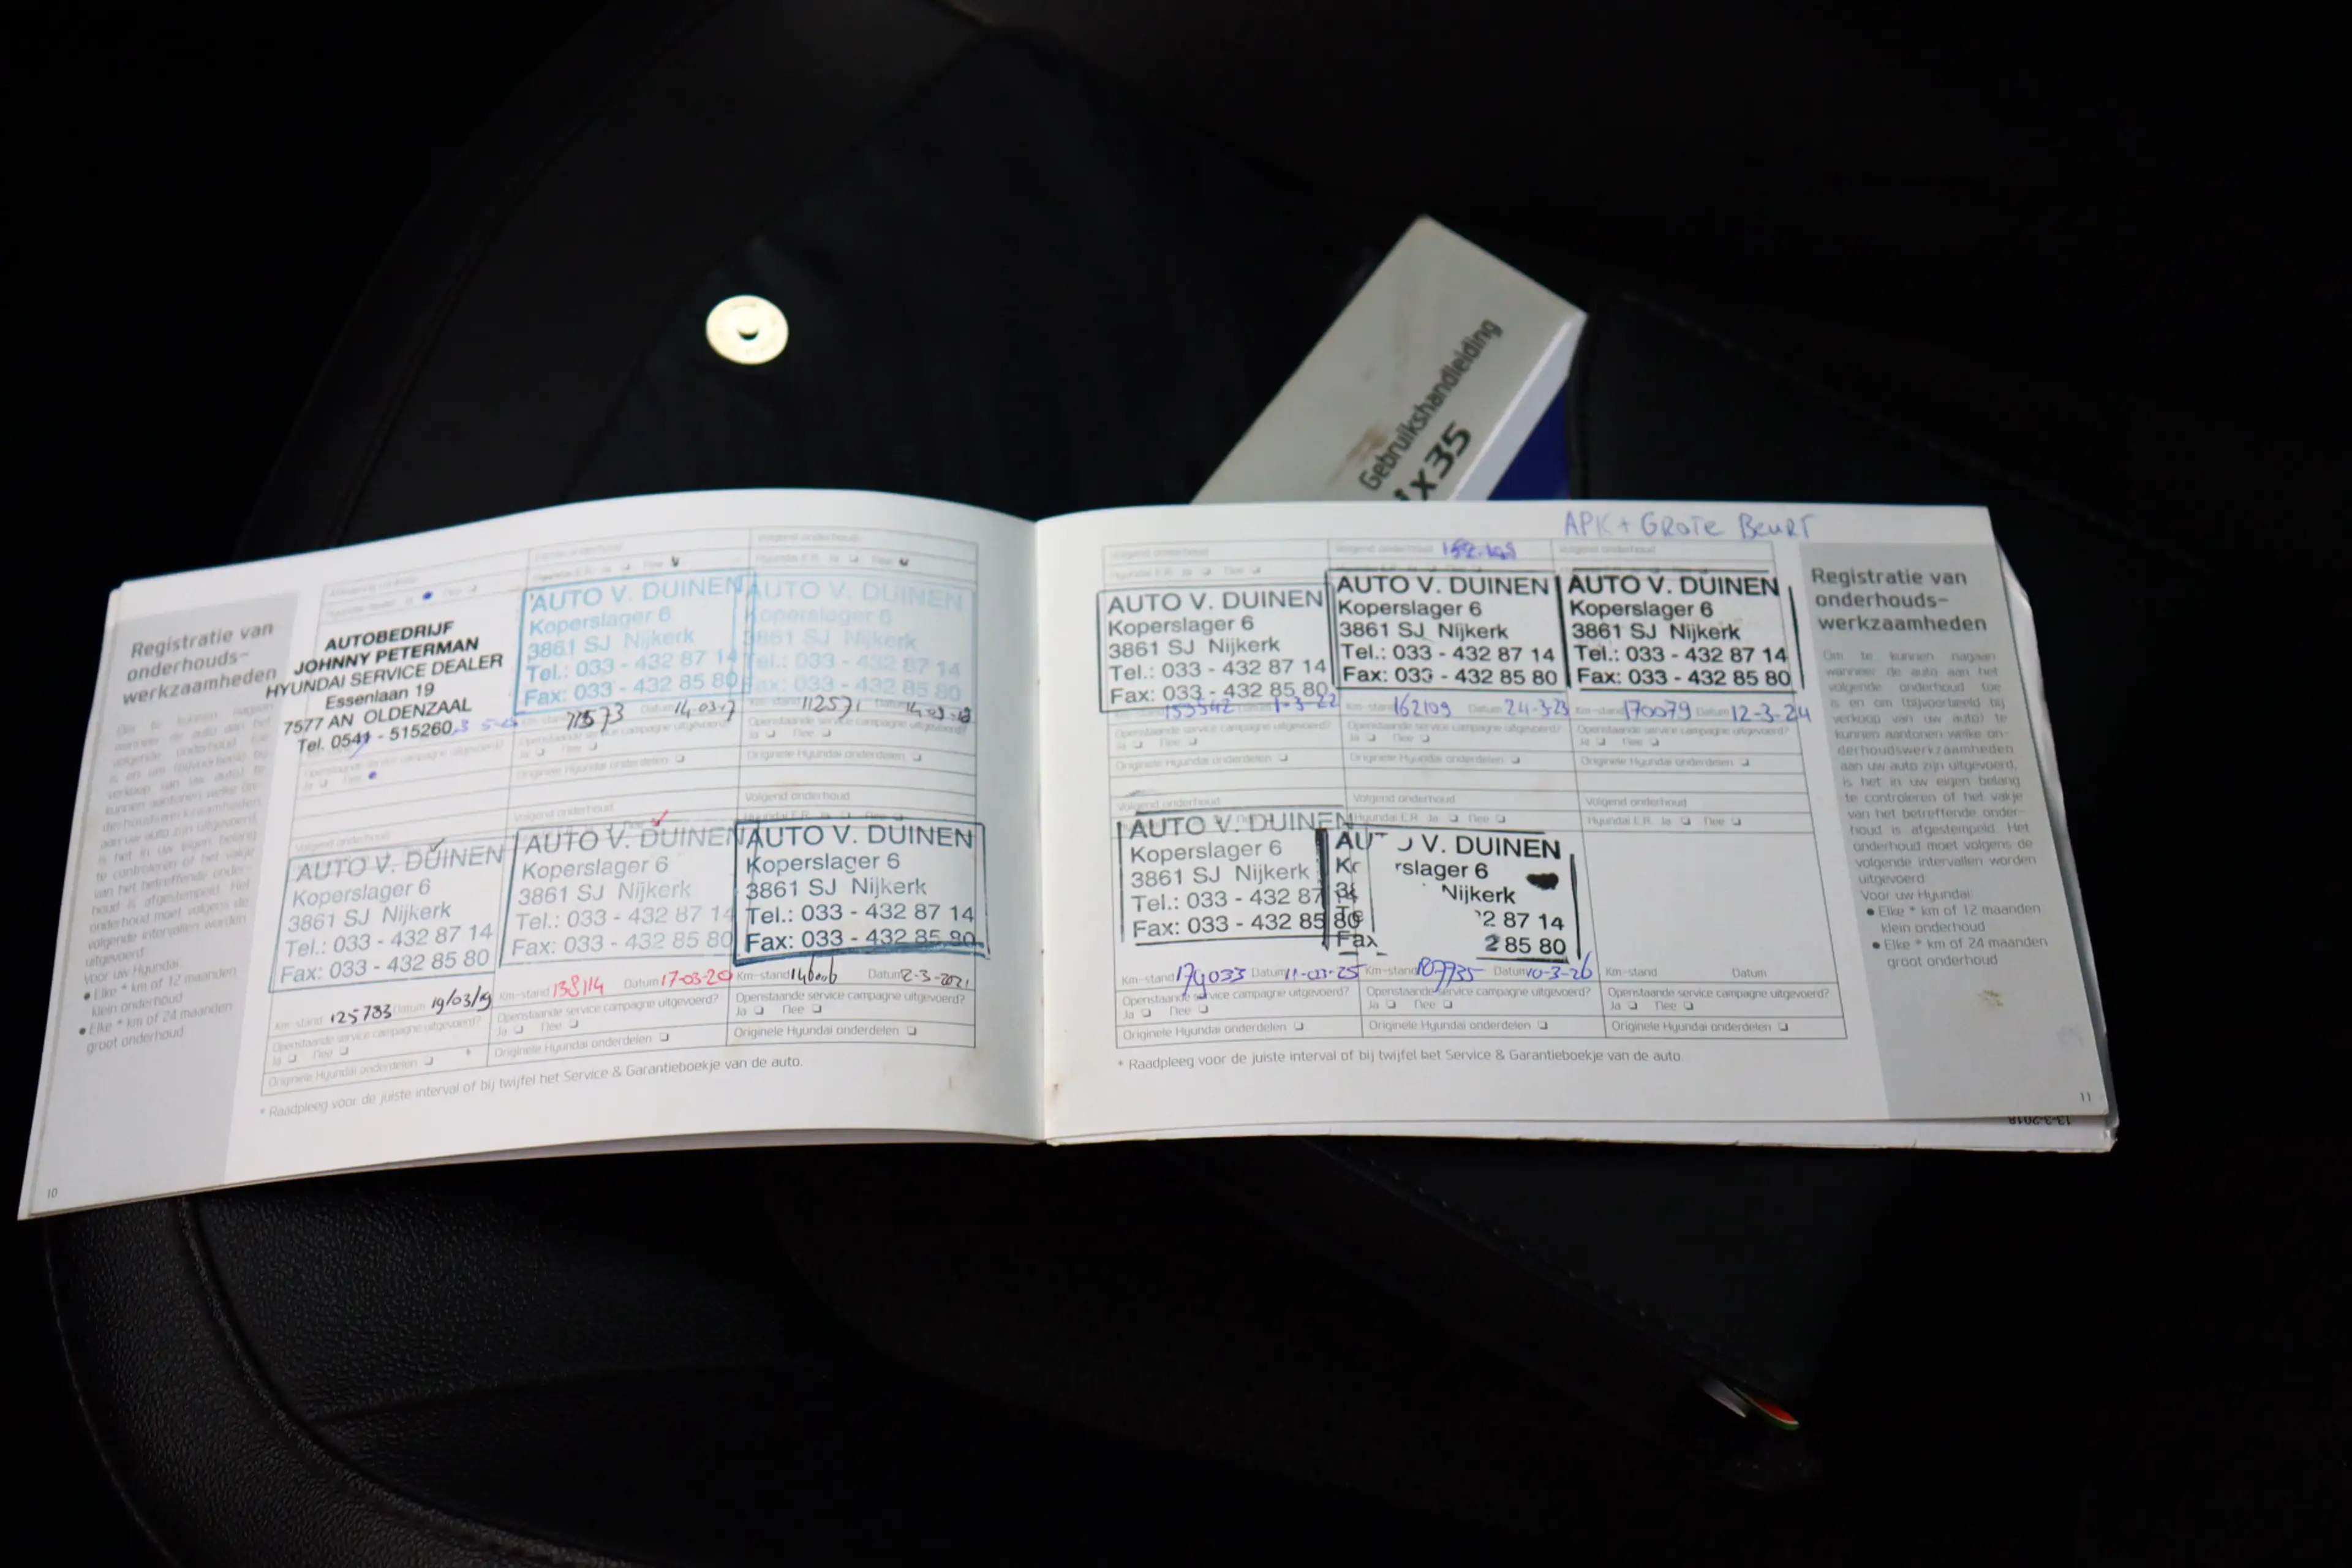 Gebruikshandleiding
ix35
Registratie van
onderhouds-
werkzaamheden
● Elke * km of 12 maanden
klein onderhoud
● Elke * km of 24 maanden
groot onderhoud
10
AUTOBEDRIJF
JOHNNY PETERMAN
HYUNDAI SERVICE DEALER
Essenlaan 19
7577 AN OLDENZAAL
Tel. 0541 - 515260
AUTO V. DUINEN
Koperslager 6
3861 SJ Nijkerk
Tel.: 033 - 432 87 14
Fax: 033 - 432 85 80
Datum 14-03-17
Openstaande service campagne uitgevoerd?
Ja Nee
Originele Hyundai onderdelen
AUTO V. DUINEN
Koperslager 6
3861 SJ Nijkerk
Tel.: 033 - 432 87 14
Fax: 033 - 432 85 80
Km-stand 112571 Datum 14-03-18
Openstaande service campagne uitgevoerd?
Ja Nee
Originele Hyundai onderdelen
Volgend onderhoud
AUTO V. DUINEN
Koperslager 6
3861 SJ Nijkerk
Tel.: 033 - 432 87 14
Fax: 033 - 432 85 80
Km-stand 125783 Datum 19/03/19
Openstaande service campagne uitgevoerd?
Ja Nee
Originele Hyundai onderdelen
Volgend onderhoud
AUTO V. DUINEN
Koperslager 6
3861 SJ Nijkerk
Tel.: 033 - 432 87 14
Fax: 033 - 432 85 80
Km-stand 138114 Datum 17-03-20
Openstaande service campagne uitgevoerd?
Ja Nee
Originele Hyundai onderdelen
Volgend onderhoud
AUTO V. DUINEN
Koperslager 6
3861 SJ Nijkerk
Tel.: 033 - 432 87 14
Fax: 033 - 432 85 80
Km-stand 146006 Datum 2-3-2021
Openstaande service campagne uitgevoerd?
Ja Nee
Originele Hyundai onderdelen
* Raadpleeg voor de juiste interval of bij twijfel het Service & Garantieboekje van de auto.
APK + GROTE BEURT
Volgend onderhoud
AUTO V. DUINEN
Koperslager 6
3861 SJ Nijkerk
Tel.: 033 - 432 87 14
Fax: 033 - 432 85 80
1-3-22
Openstaande service campagne uitgevoerd?
Ja Nee
Originele Hyundai onderdelen
Volgend onderhoud
AUTO V. DUINEN
Koperslager 6
3861 SJ Nijkerk
Tel.: 033 - 432 87 14
Fax: 033 - 432 85 80
Km-stand 162109 Datum 24-3-23
Openstaande service campagne uitgevoerd?
Ja Nee
Originele Hyundai onderdelen
Volgend onderhoud
AUTO V. DUINEN
Koperslager 6
3861 SJ Nijkerk
Tel.: 033 - 432 87 14
Fax: 033 - 432 85 80
Km-stand 170079 Datum 12-3-24
Openstaande service campagne uitgevoerd?
Ja Nee
Originele Hyundai onderdelen
Volgend onderhoud
AUTO V. DUINEN
Koperslager 6
3861 SJ Nijkerk
Tel.: 033 - 432 87
Fax: 033 - 432 85 80
Km-stand 179033 Datum 11-03-25
Openstaande service campagne uitgevoerd?
Ja Nee
Originele Hyundai onderdelen
Volgend onderhoud
Hyundai E.R. Ja Nee
V. DUINEN
rslager 6
Nijkerk
2 87 14
Fax 2 85 80
Km-stand Datum 10-3-26
Openstaande service campagne uitgevoerd?
Ja Nee
Originele Hyundai onderdelen
Volgend onderhoud
Hyundai E.R. Ja Nee
Km-stand Datum
Openstaande service campagne uitgevoerd?
Ja Nee
Originele Hyundai onderdelen
* Raadpleeg voor de juiste interval of bij twijfel het Service & Garantieboekje van de auto.
Registratie van
onderhouds-
werkzaamheden
Om te kunnen nagaan
wanneer de auto aan het
volgende onderhoud toe
is en om (bijvoorbeeld bij
verkoop van uw auto) te
kunnen aantonen welke on-
derhoudswerkzaamheden
aan uw auto zijn uitgevoerd,
is het in uw eigen belang
te controleren of het vakje
van het betreffende onder-
houd is afgestempeld. Het
onderhoud moet volgens de
volgende intervallen worden
uitgevoerd:
Voor uw Hyundai:
● Elke * km of 12 maanden
klein onderhoud
● Elke * km of 24 maanden
groot onderhoud
11
13-3-2018